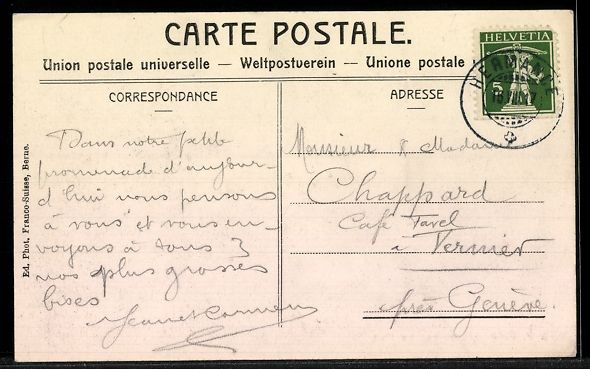 CARTE POSTALE.
Union postale universelle — Weltpostverein — Unione postale
HELVETIA
5
HERMANCE
CORRESPONDANCE
ADRESSE
Dans notre petite
promenade d'aujour-
d'hui nous pensons
à vous et vous en-
voyons à tous 3
nos plus grosses
bises
Monsieur & Madame
Chappard
Café Tavel
à Vernier
près Genève.
Ed. Phot. Franco-Suisse, Berne.